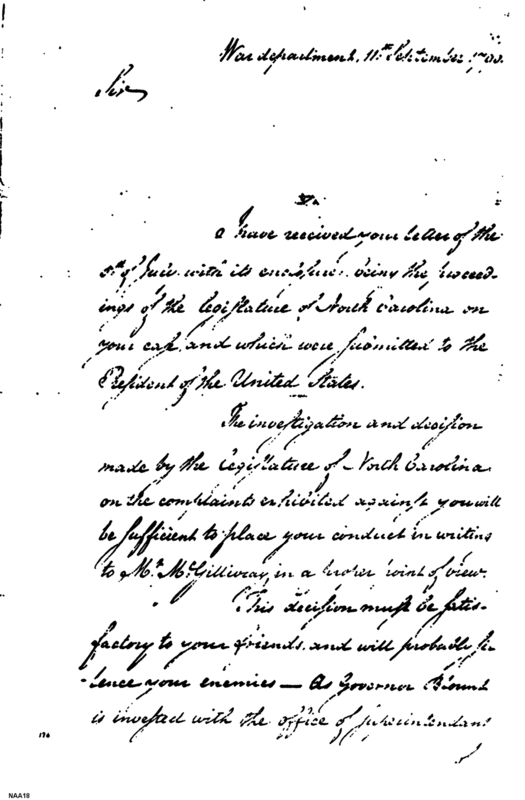 War department, 11th September 17
Sir
I have received your letter of the
5th of July with its enclosure being the proceed-
ings of the legislature of North Carolina on
your case, and which were submitted to the
President of the United States.
The investigation and decision
made by the Legislature of North Carolina
on the complaints exhibited against you will
be sufficient to place your conduct in writing
to Mr. McGillivray in a proper point of view.
This decision must be satis-
factory to your friends, and will probably si-
-lence your enemies — As Governor Blount
is invested with the office of superintendant
176
NAA18